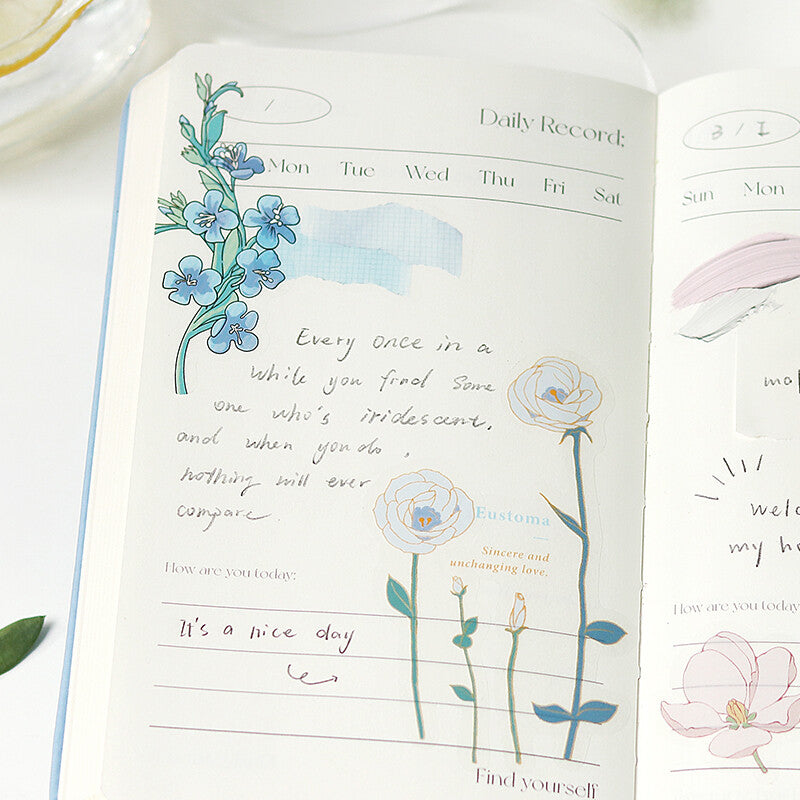 Daily Record:
Mon Tue Wed Thu Fri Sat
Every once in a
while you find some
one who's iridescent,
and when you do,
nothing will ever
compare
Eustoma
Sincere and
unchanging love.
How are you today:
It's a nice day
Find yourself
3 / 1
Sun Mon
my
How are you today